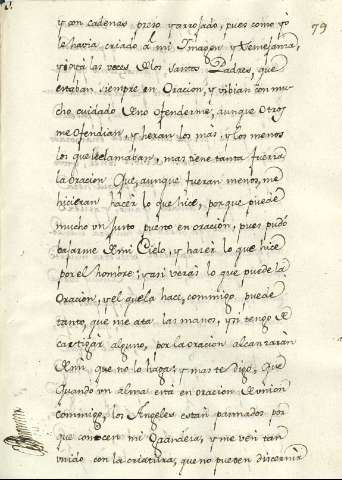 79
y con cadenas preso y arrojado, pues como yo
le havia criado a mi Imagen y Semejansa,
y oiya las voces de los Santos Padres, que
estaban siempre en Oracion, y vibian con mu-
cho cuidado de no ofenderme, aunque otros
me ofendian, y heran los mas, y los menos
los que clamaban, mas tiene tanta fuersa
la oracion que, aunque fueran menos, me
hicieran hacer lo que hice, porque puede
mucho vn justo puesto en oración, pues pudó
bajarme de mi Cielo, y hacer lo que hice
por el hombre; y asi veras lo que puede la
Oracion, y el que la hace, commigo puede
tanto, que me ata las manos, y si tengo de
castigar alguno, por la oracion alcanzaran
de mi que no lo haga; y mas te digo, que
quando vn alma está en oracion de vnion
commigo, los Angeles estan pasmados por
que conocen mi Grandeza, y me ven tan
vnido con la criatura, que no pueden discernir